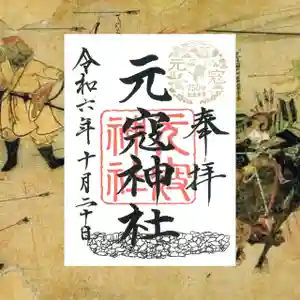 奉拝
元寇
750
元寇神社
元寇神社
令和六年十月二十日